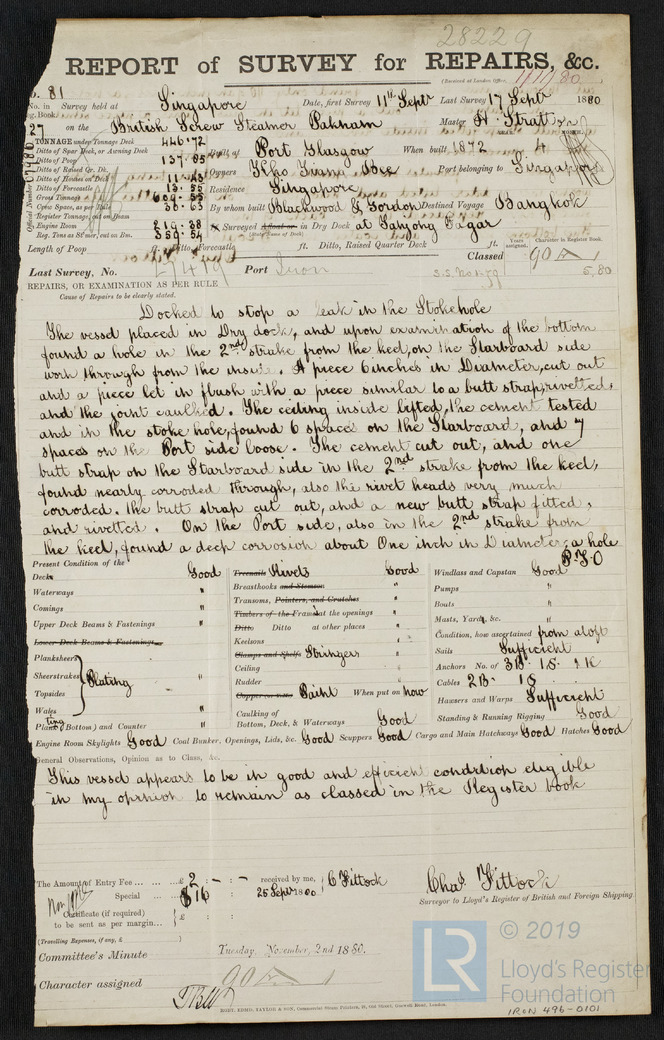 28229
REPORT of SURVEY for REPAIRS, &c.
(Received at London Office,
No. 81
No. in Survey held at Singapore Date, first Survey 11th Septr Last Survey 17 Septr 1880
Reg. Book.
27 on the British Screw Steamer Paknam Master H. Stratton
TONNAGE under Tonnage Deck 446.72
Ditto of Spar Deck, or Awning Deck
Ditto of Poop 137.85 Built at Port Glasgow When built 1872 4
Ditto of Raised Qr. Dk.
Ditto of Houses on Deck Owners Port belonging to Singapore
Ditto of Forecastle 13.55 Residence Singapore
Gross Tonnage
Crew Space, as per By whom built Blackwood & Gordon Destined Voyage Bangkok
Register Tonnage, cut on Beam
Engine Room 219.38 Surveyed Afloat or in Dry Dock at Tanjong Pagar
Reg. Tons as St'mer, cut on Bm.
Length of Poop ft. Ditto, Forecastle ft. Ditto, Raised Quarter Deck ft.
Years assigned. Character in Register Book.
Classed 90 A 1
5,80
Last Survey, No. 27419 Port Iron S.S. No 1-79
REPAIRS, OR EXAMINATION AS PER RULE
Cause of Repairs to be clearly stated.
Docked to stop a leak in the Stokehole
The vessel placed in Dry dock, and upon examination of the bottom
found a hole in the 2nd strake from the keel, on the Starboard side
worn through from the inside. A piece 6 inches in Diameter, cut out
and a piece let in flush with a piece similar to a butt strap, rivetted,
and the joint caulked. The ceiling inside lifted, the cement tested
and in the stoke hole, found 6 spaces on the Starboard, and 7
spaces on the Port side loose. The cement cut out, and one
butt strap on the Starboard side in the 2nd strake from the keel,
found nearly corroded through, also the rivet heads very much
corroded. the butt strap cut out, and a new butt strap fitted,
and rivetted. On the Port side, also in the 2nd strake from
the keel, found a deep corrosion about One inch in Diameter; a hole
P.T.O
Present Condition of the
Decks Good Treenails Rivets Good Windlass and Capstan Good
Waterways " Breasthooks and Stemson " Pumps "
Comings " Transoms, Pointers, and Crutches " Boats "
Upper Deck Beams & Fastenings " Timbers of the Frames at the openings " Masts, Yards, &c. "
Lower Deck Beams & Fastenings Ditto Ditto at other places " Condition, how ascertained from aloft
Planksheer Keelsons " Sails Sufficient
Sheerstrakes Plating Clamps and Shelfs Stringers " Anchors No. of 3B. 1S. 2K
Topsides Ceiling " Cables 2B. 1S
Wales Rudder " Hawsers and Warps Sufficient
Plating (Bottom) and Counter " Paint When put on now Standing & Running Rigging Good
Caulking of Bottom, Deck, & Waterways Good
Engine Room Skylights Good Coal Bunker, Openings, Lids, &c. Good Scuppers Good Cargo and Main Hatchways Good Hatches Good
General Observations, Opinion as to Class, &c.
This vessel appears to be in good and efficient condition eligible
in my opinion to remain as classed in the Register book
The Amount of Entry Fee £ 2 : - : - received by me, C Fittock
Special $16 25 Septr 1880
Chas Fittock
Surveyor to Lloyd's Register of British and Foreign Shipping
Certificate (if required)
to be sent as per margin
(Travelling Expenses, if any, £ )
Committee's Minute Tuesday, November, 2nd 1880.
Character assigned 90 A 1
ROBT. EDMD. TAYLOR & SON
© 2019
LR
Lloyd's Register
Foundation
IRON 496-0101